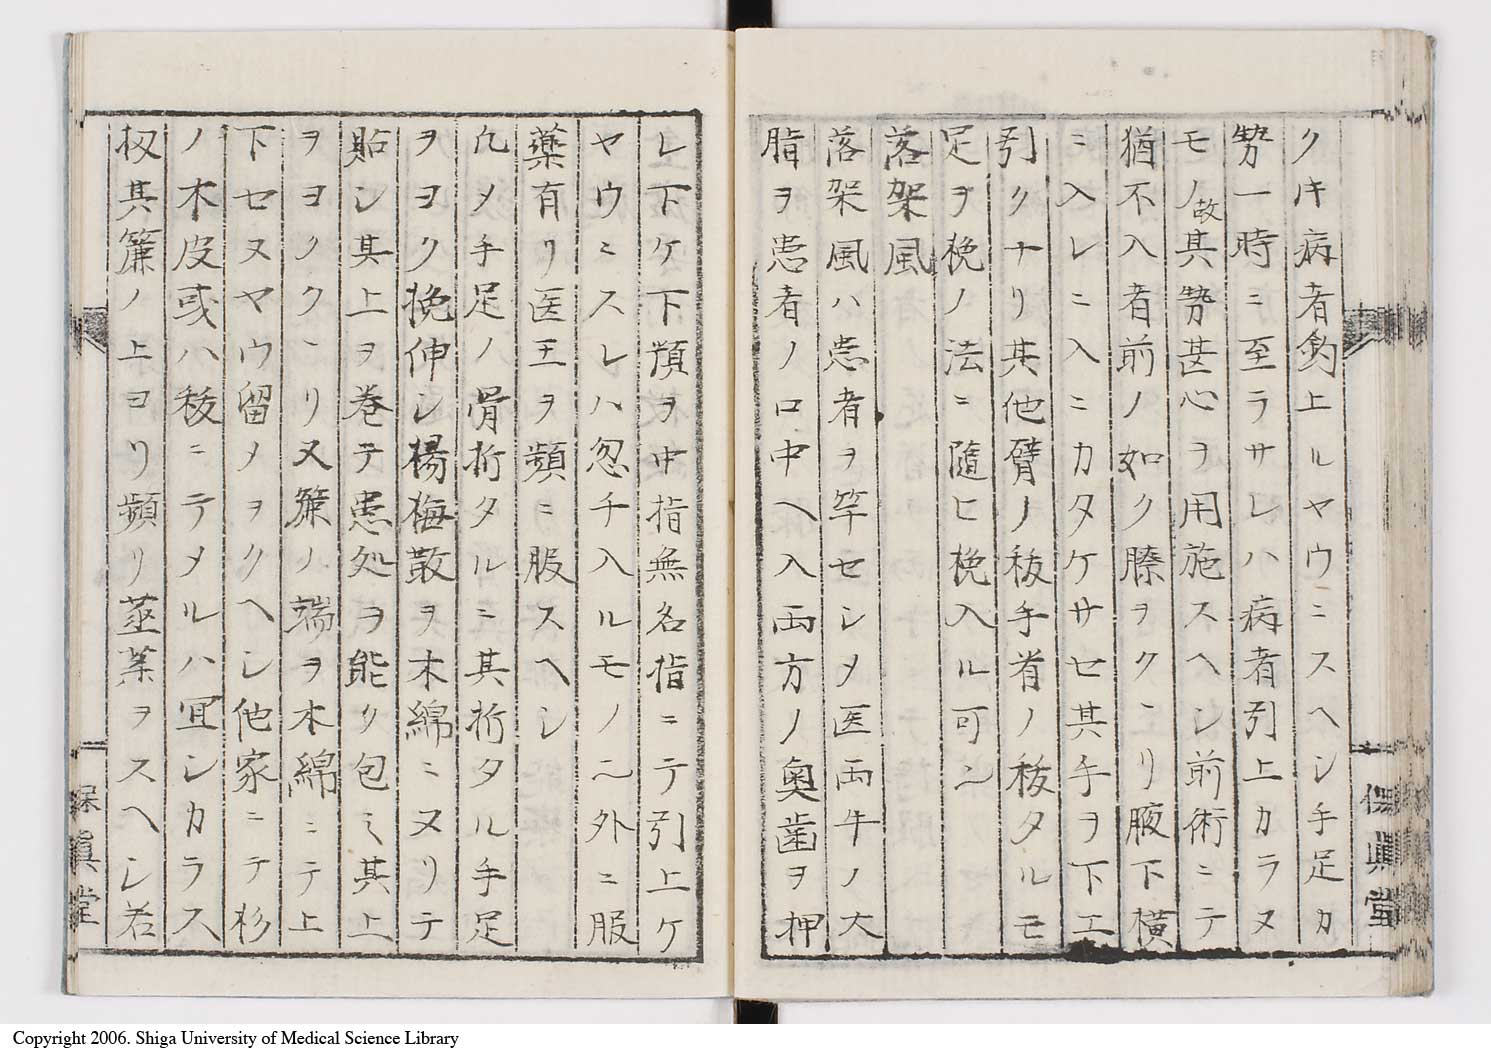 クキ病者釣上ルヤウニスヘシ手足カ
勢一時ニ至ラサレハ病者引上カラヌ
モノ故其勢甚心ヲ用施スヘシ前術ニテ
猶不入者前ノ如ク膝ヲクヽリ腋下横
ニ入レニ入ニカタケサセ其手ヲ下エ
引クナリ其他臂ノ手肩ノタルモ
足ヲ挽ノ法ニ隨ヒ挽入ル可シ
落架風
落架風ハ患者ヲ竿セシメ医両手ノ大
脂ヲ患者ノ口中ヘ入両方ノ奥歯ヲ押
レ下ケ下頬ヲ中指無名指ニテ引上ケ
ヤウニスレハ忽チ入ルモノ也外ニ服
薬有リ医王ヲ頻ニ服スヘシ
凡メ手足ノ骨折タルニ其折タル手足
ヲヨク挽伸シ楊梅散ヲ木綿ニヌリテ
貼シ其上ヲ巻テ患処ヲ能ク包ミ其上
ヲヨクヽリ又簾ノ端ヲ木綿ニテ上
下セヌヤウ留メヲクヘシ他家ニテ杉
ノ木皮或ハニテメルハ冝シカラス
扱其簾ノ上ヨリ頻リ蒸薬ヲスヘシ若
保真堂
保眞堂
Copyright 2006. Shiga University of Medical Science Library